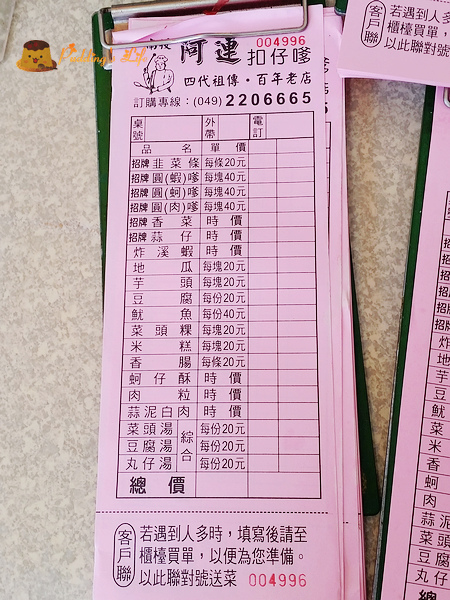 Pudding's Life
阿連 扣仔嗲
004996
四代祖傳・百年老店
訂購專線:(049)2206665
桌號 外帶 電訂
品名 單價
招牌 韭菜條 每條20元
招牌 圓(蝦)嗲 每塊40元
招牌 圓(蚵)嗲 每塊40元
招牌 圓(肉)嗲 每塊40元
招牌 香菜 時價
招牌 蒜仔 時價
炸溪蝦 時價
地瓜 每塊20元
芋頭 每塊20元
豆腐 每份20元
魷魚 每份40元
菜頭粿 每塊20元
米糕 每塊20元
香腸 每條20元
蚵仔酥 時價
肉粒 時價
蒜泥白肉 時價
菜頭湯 綜合 每份20元
豆腐湯 每份20元
丸仔湯 每份20元
總價
客戶聯
若遇到人多時,填寫後請至
櫃檯買單,以便為您準備。
以此聯對號送菜 004996
客戶聯
若遇到人多
櫃檯買單,
以此聯對號
招牌
招牌
招牌
炸
地
芋
豆
魷
菜
米
香
蚵
肉
蒜泥
菜頭
豆腐
丸仔
總
客戶聯